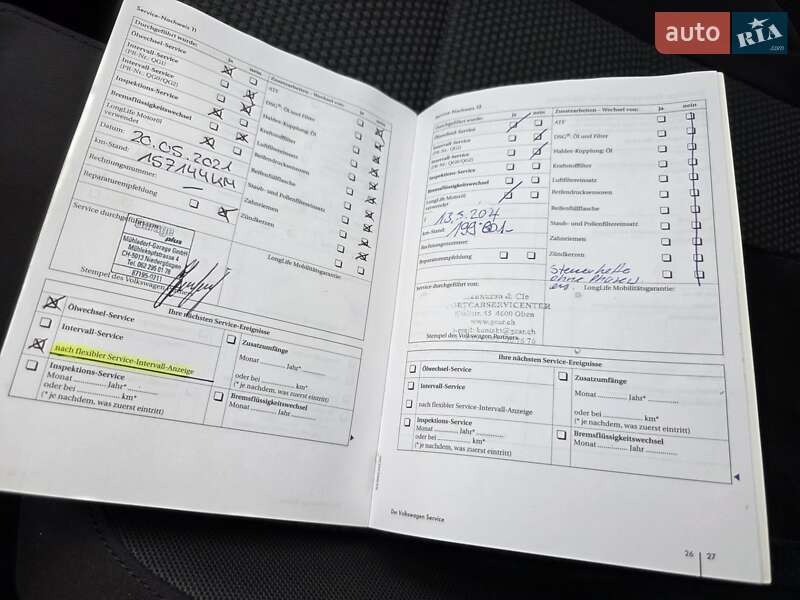 auto RIA
.com
Service-Nachweis 11
Durchgeführt wurde:
ja
nein
Ölwechsel-Service
Intervall-Service
(PR-Nr.: QG1)
Intervall-Service
(PR-Nr.: QG0/QG2)
Inspektions-Service
Bremsflüssigkeitswechsel
LongLife Motoröl
verwendet
Datum:
20.05.2021
km-Stand:
157144 KM
Rechnungsnummer:
Reparaturempfehlung
Zusatzarbeiten – Wechsel von:
ja
nein
ATF
DSG®: Öl und Filter
Haldex-Kupplung: Öl
Kraftstofffilter
Luftfiltereinsatz
Reifendrucksensoren
Reifenfüllflasche
Staub- und Pollenfiltereinsatz
Zahnriemen
Zündkerzen
LongLife Mobilitätsgarantie:
Service durchgeführt von:
garage
plus
Mühledorf-Garage GmbH
CH-5013 Niedergösgen
Tel. 062 295 01 78
Stempel des Volkswagen
Ihre nächsten Service-Ereignisse
Ölwechsel-Service
Intervall-Service
nach flexibler Service-Intervall-Anzeige
Inspektions-Service
Monat ............ Jahr* ............
oder bei ............ km*
(* je nachdem, was zuerst eintritt)
Zusatzumfänge
Monat ............ Jahr* ............
oder bei ............ km*
(* je nachdem, was zuerst eintritt)
Bremsflüssigkeitswechsel
Monat ............ Jahr ............
Service-Nachweis 12
Durchgeführt wurde:
ja
nein
Ölwechsel-Service
Intervall-Service
(PR-Nr.: QG1)
Intervall-Service
(PR-Nr.: QG0/QG2)
Inspektions-Service
Bremsflüssigkeitswechsel
LongLife Motoröl
verwendet
km-Stand:
199.801.-
Rechnungsnummer:
Reparaturempfehlung
Zusatzarbeiten – Wechsel von:
ja
nein
ATF
DSG®: Öl und Filter
Haldex-Kupplung: Öl
Kraftstofffilter
Luftfiltereinsatz
Reifendrucksensoren
Reifenfüllflasche
Staub- und Pollenfiltereinsatz
Zahnriemen
Zündkerzen
LongLife Mobilitätsgarantie:
Service durchgeführt von:
& Cie
PORTCARSERVICENTER
45 4600 Olten
www.pcar.ch
Stempel des Volkswagen Partners
Ihre nächsten Service-Ereignisse
Ölwechsel-Service
Intervall-Service
nach flexibler Service-Intervall-Anzeige
Inspektions-Service
Monat ............ Jahr* ............
oder bei ............ km*
(* je nachdem, was zuerst eintritt)
Zusatzumfänge
Monat ............ Jahr* ............
oder bei ............ km*
(* je nachdem, was zuerst eintritt)
Bremsflüssigkeitswechsel
Monat ............ Jahr ............
Der Volkswagen Service
26 | 27